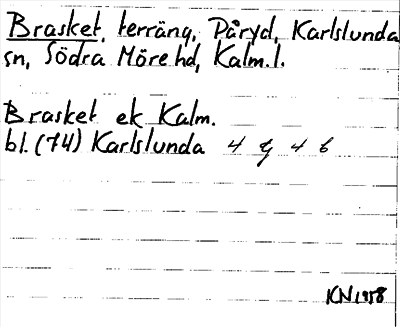 Brasket, terräng, Påryd, Karlslunda
sn, Södra Möre hd, Kalm. l.
Brasket ek Kalm.
bl. (74) Karlslunda 4 g 4 b
KN 1958